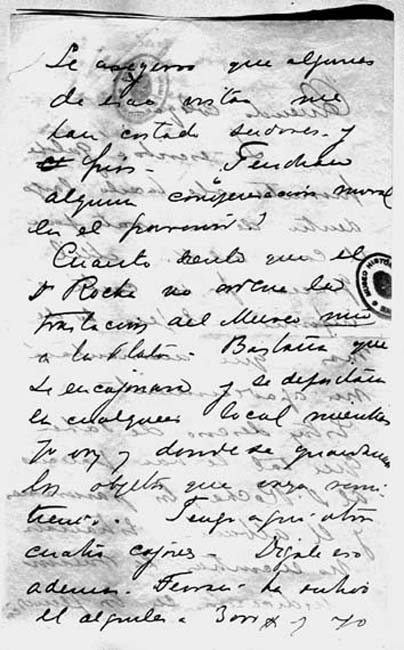 Le aseguro que algunas
de esas vistas me
han costado sudores y
frios. Tendran
alguna compensacion moral
en el porvenir?
Cuanto siento que el
Dr Rocha no ordene la
traslacion del Museo
a la Plata. Bastaria que
se encajonara y se depositara
en cualquier local mientras
yo voy y donde se guardaran
los objetos que vaya remi
tiendo. Tengo aqui otros
cuatro cajones - Digale eso
ademas. Ferrari ha subido
el alquiler a 3000 y yo
MUSEO HISTÓ